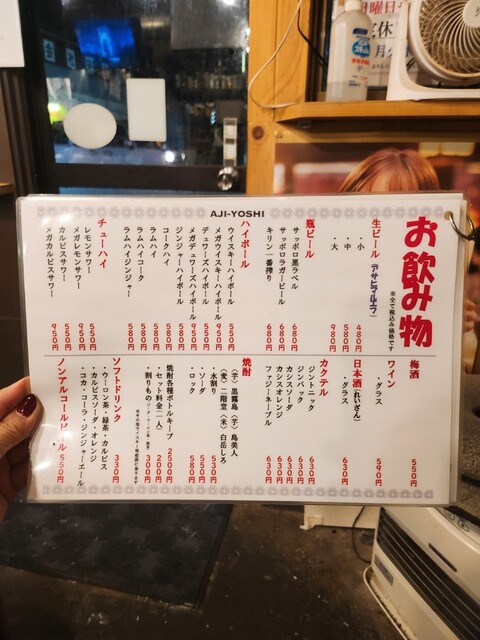 AJI-YOSHI
お飲み物
※全て税込み価格です
生ビール
アサヒマルエフ
・小 480円
・中 580円
・大 980円
瓶ビール
サッポロ黒ラベル 680円
サッポロラガービール 680円
キリン一番搾り 680円
ハイボール
ウイスキーハイボール 550円
メガウイスキーハイボール 950円
デュワーズハイボール 550円
メガデュワーズハイボール 950円
ジンジャーハイボール 580円
コークハイ 580円
ラムハイ 550円
ラムハイコーク 580円
ラムハイジンジャー 580円
チューハイ
レモンサワー 550円
メガレモンサワー 950円
カルピスサワー 550円
メガカルピスサワー 950円
梅酒 550円
ワイン
・グラス 590円
日本酒(れいざん)
・グラス 630円
カクテル
ジントニック 630円
ジンバック 630円
カシスソーダ 630円
カシスオレンジ 630円
ファジーネーブル 630円
焼酎
(芋)黒霧島 (芋)島美人
(麦)二階堂 (米)白岳しろ
・水割り 530円
・ソーダ 550円
・ロック 580円
焼酎各種ボトルキープ 2500円
・セット料金(一人) 200円
・割りもの 300円
ソフトドリンク 330円
・ウーロン茶・緑茶・カルピス
・カルピスソーダ・オレンジ
・コカ・コーラ・ジンジャーエール
ノンアルコールビール 550円